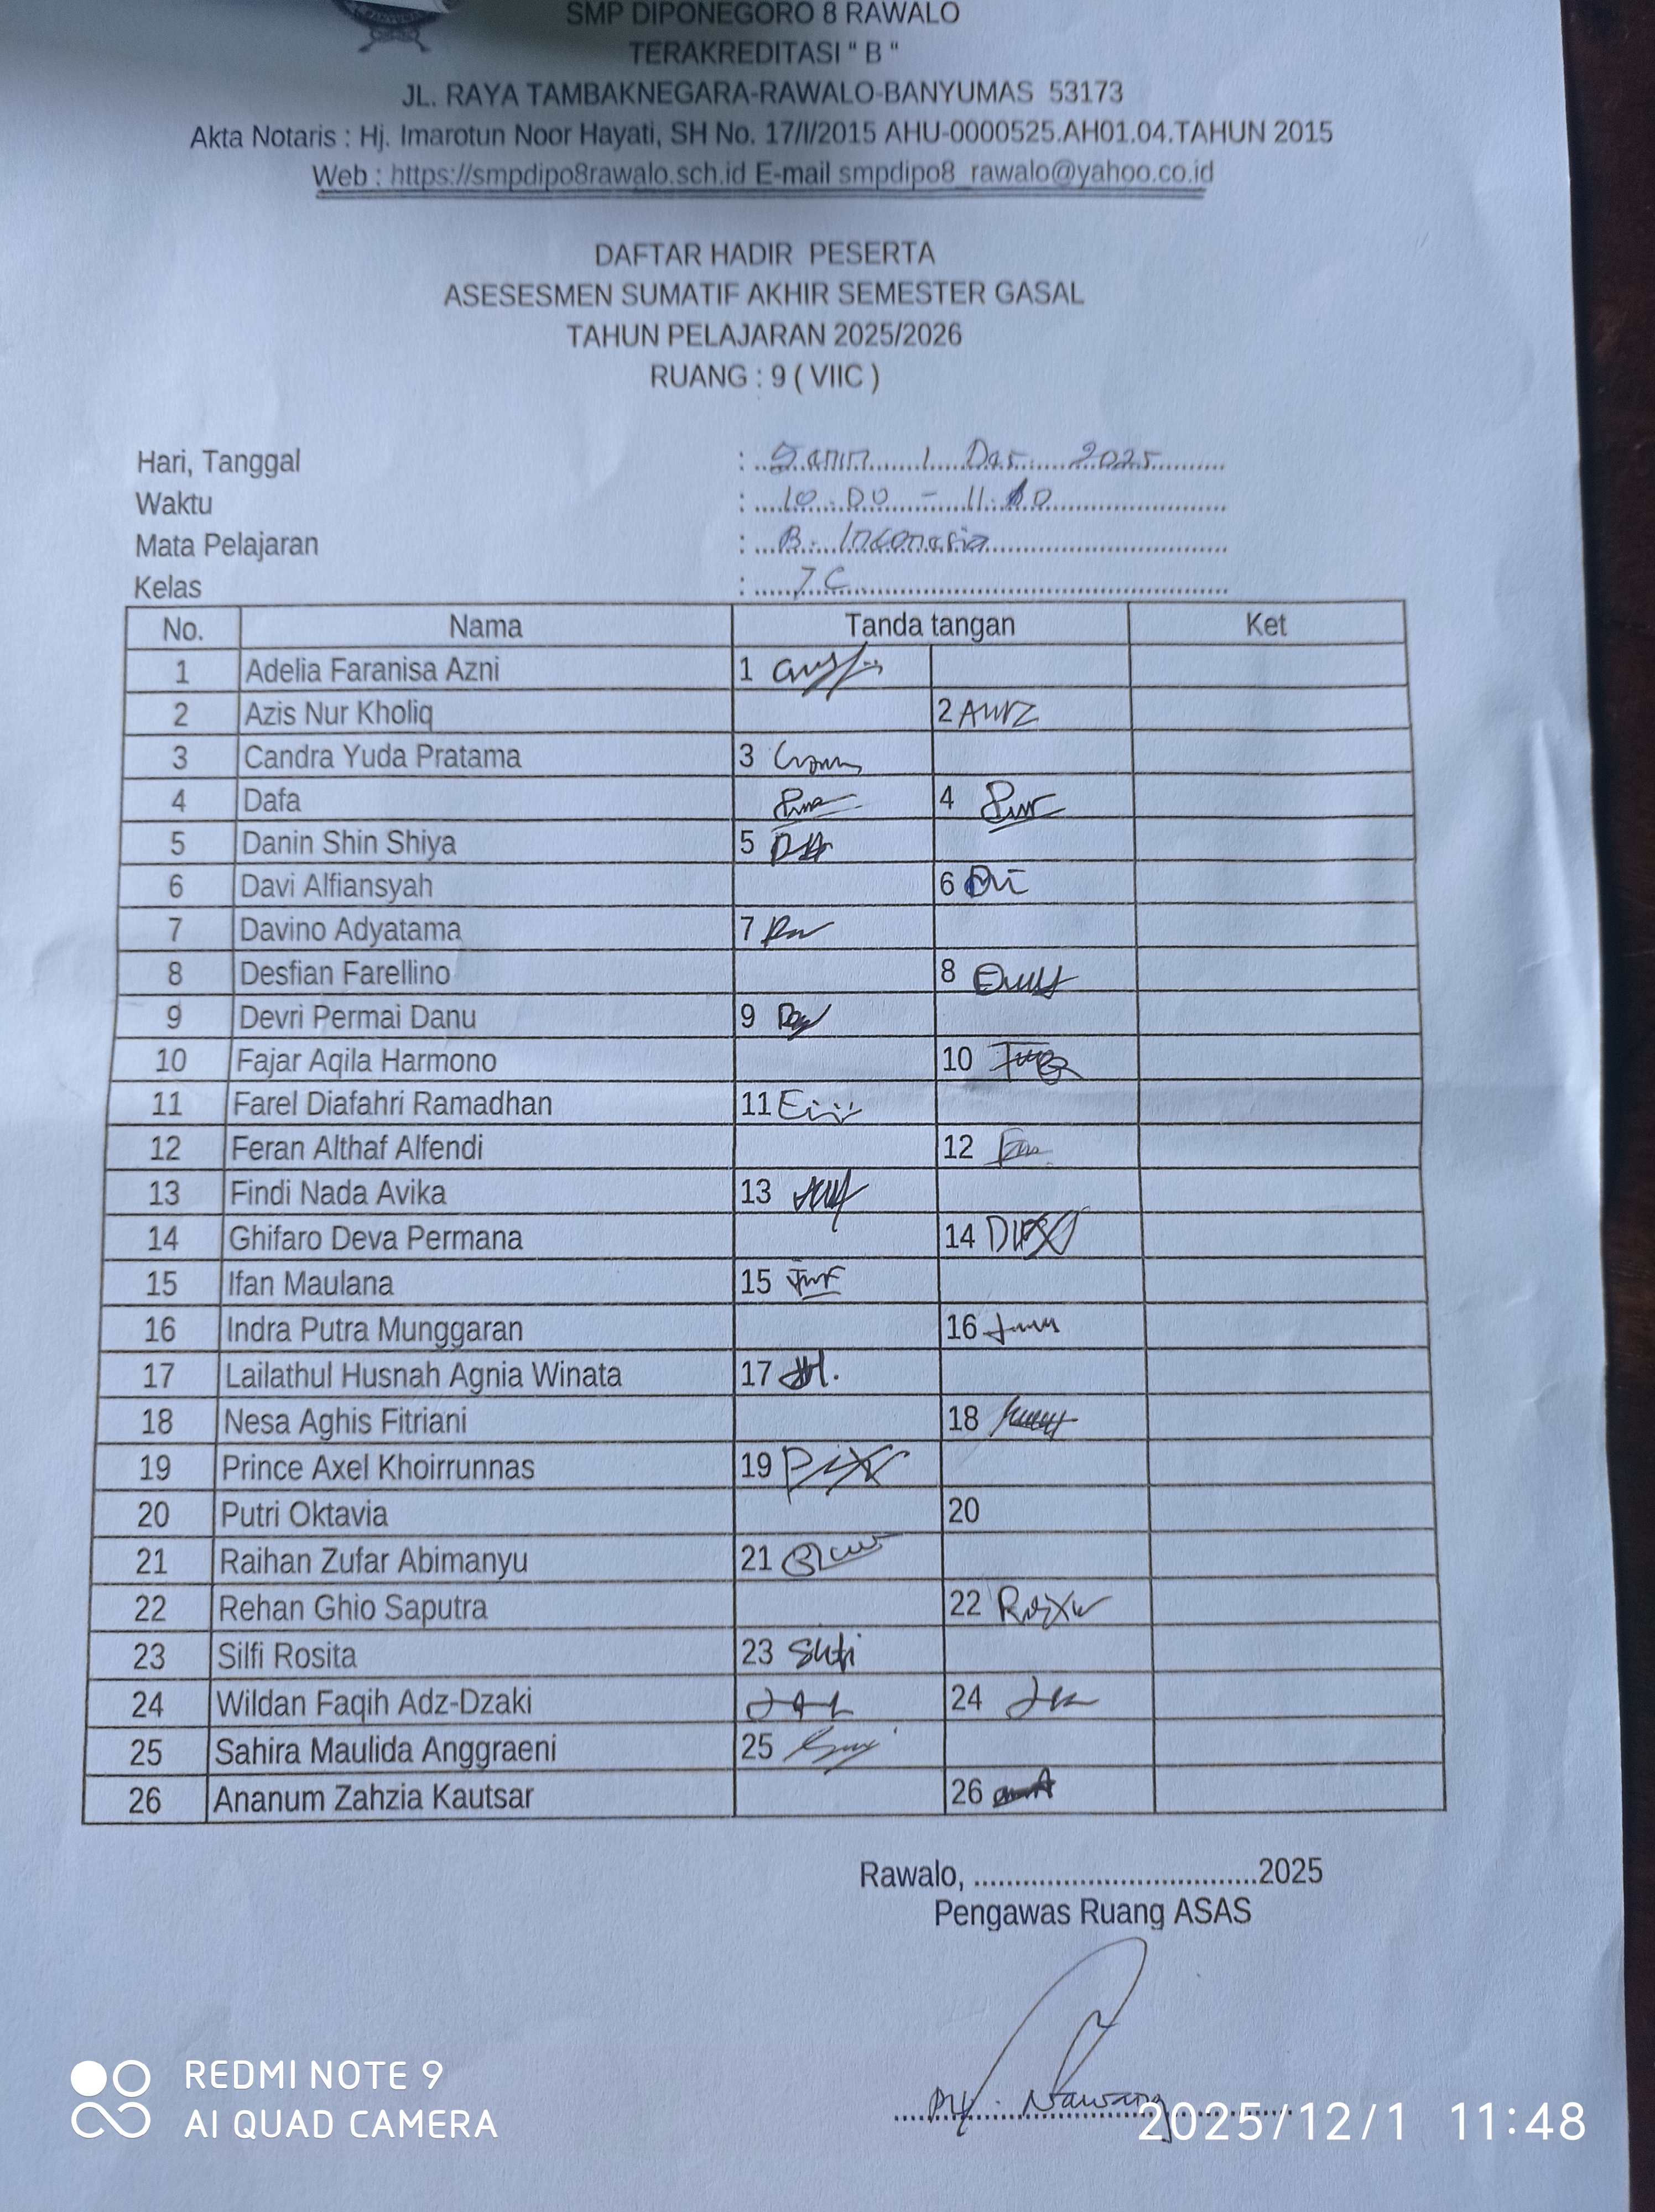 SMP DIPONEGORO 8 RAWALO
TERAKREDITASI " B "
JL. RAYA TAMBAKNEGARA-RAWALO-BANYUMAS 53173
Akta Notaris : Hj. Imarotun Noor Hayati, SH No. 17/I/2015 AHU-0000525.AH01.04.TAHUN 2015
Web : https://smpdipo8rawalo.sch.id E-mail smpdipo8_rawalo@yahoo.co.id
DAFTAR HADIR PESERTA
ASESESMEN SUMATIF AKHIR SEMESTER GASAL
TAHUN PELAJARAN 2025/2026
RUANG : 9 ( VIIC )
Hari, Tanggal : Senin 1 Des 2025
Waktu : 10.00 - 11.
Mata Pelajaran : B. Indonesia
Kelas : 7C
No. Nama Tanda tangan Ket
1 Adelia Faranisa Azni 1
2 Azis Nur Kholiq 2
3 Candra Yuda Pratama 3
4 Dafa 4
5 Danin Shin Shiya 5
6 Davi Alfiansyah 6
7 Davino Adyatama 7
8 Desfian Farellino 8
9 Devri Permai Danu 9
10 Fajar Aqila Harmono 10
11 Farel Diafahri Ramadhan 11
12 Feran Althaf Alfendi 12
13 Findi Nada Avika 13
14 Ghifaro Deva Permana 14
15 Ifan Maulana 15
16 Indra Putra Munggaran 16
17 Lailathul Husnah Agnia Winata 17
18 Nesa Aghis Fitriani 18
19 Prince Axel Khoirrunnas 19
20 Putri Oktavia 20
21 Raihan Zufar Abimanyu 21
22 Rehan Ghio Saputra 22
23 Silfi Rosita 23
24 Wildan Faqih Adz-Dzaki 24
25 Sahira Maulida Anggraeni 25
26 Ananum Zahzia Kautsar 26
Rawalo, ...................................2025
Pengawas Ruang ASAS
Nawang
REDMI NOTE 9
AI QUAD CAMERA
2025/12/1 11:48